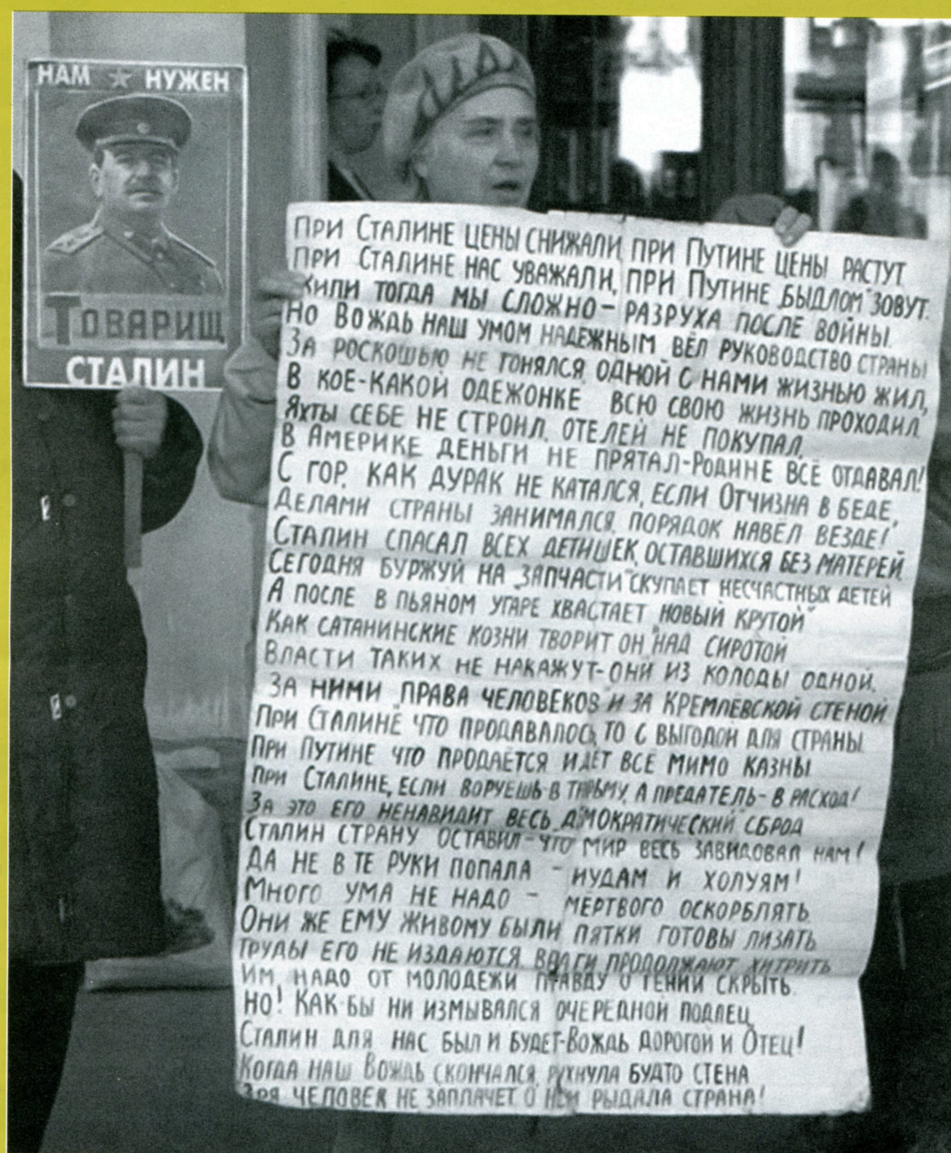 НАМ НУЖЕН
ТОВАРИЩ
СТАЛИН
ПРИ СТАЛИНЕ ЦЕНЫ СНИЖАЛИ, ПРИ ПУТИНЕ ЦЕНЫ РАСТУТ
ПРИ СТАЛИНЕ НАС УВАЖАЛИ, ПРИ ПУТИНЕ „БЫДЛОМ" ЗОВУТ.
ЖИЛИ ТОГДА МЫ СЛОЖНО – РАЗРУХА ПОСЛЕ ВОЙНЫ.
НО ВОЖДЬ НАШ УМОМ НАДЕЖНЫМ ВЁЛ РУКОВОДСТВО СТРАНЫ
ЗА РОСКОШЬЮ НЕ ГОНЯЛСЯ, ОДНОЙ С НАМИ ЖИЗНЬЮ ЖИЛ,
В КОЕ-КАКОЙ ОДЕЖОНКЕ ВСЮ СВОЮ ЖИЗНЬ ПРОХОДИЛ.
ЯХТЫ СЕБЕ НЕ СТРОИЛ, ОТЕЛЕЙ НЕ ПОКУПАЛ,
В АМЕРИКЕ ДЕНЬГИ НЕ ПРЯТАЛ-РОДИНЕ ВСЁ ОТДАВАЛ!
С ГОР, КАК ДУРАК НЕ КАТАЛСЯ, ЕСЛИ ОТЧИЗНА В БЕДЕ,
ДЕЛАМИ СТРАНЫ ЗАНИМАЛСЯ, ПОРЯДОК НАВЁЛ ВЕЗДЕ!
СТАЛИН СПАСАЛ ВСЕХ ДЕТИШЕК, ОСТАВШИХСЯ БЕЗ МАТЕРЕЙ
СЕГОДНЯ БУРЖУЙ НА „ЗАПЧАСТИ" СКУПАЕТ НЕСЧАСТНЫХ ДЕТЕЙ
А ПОСЛЕ В ПЬЯНОМ УГАРЕ ХВАСТАЕТ „НОВЫЙ КРУТОЙ"
КАК САТАНИНСКИЕ КОЗНИ ТВОРИТ ОН НАД СИРОТОЙ
ВЛАСТИ ТАКИХ НЕ НАКАЖУТ-ОНИ ИЗ КОЛОДЫ ОДНОЙ.
ЗА НИМИ „ПРАВА ЧЕЛОВЕКОВ" И ЗА КРЕМЛЕВСКОЙ СТЕНОЙ
ПРИ СТАЛИНЕ ЧТО ПРОДАВАЛОСЬ, ТО С ВЫГОДОЙ ДЛЯ СТРАНЫ
ПРИ ПУТИНЕ ЧТО ПРОДАЁТСЯ ИДЁТ ВСЁ МИМО КАЗНЫ
ПРИ СТАЛИНЕ, ЕСЛИ ВОРУЕШЬ-В ТЮРЬМУ, А ПРЕДАТЕЛЬ- В РАСХОД!
ЗА ЭТО ЕГО НЕНАВИДИТ ВЕСЬ „ДЕМОКРАТИЧЕСКИЙ" СБРОД
СТАЛИН СТРАНУ ОСТАВИЛ-ЧТО МИР ВЕСЬ ЗАВИДОВАЛ НАМ!
ДА НЕ В ТЕ РУКИ ПОПАЛА – ИУДАМ И ХОЛУЯМ!
МНОГО УМА НЕ НАДО – МЕРТВОГО ОСКОРБЛЯТЬ
ОНИ ЖЕ ЕМУ ЖИВОМУ БЫЛИ ПЯТКИ ГОТОВЫ ЛИЗАТЬ
ТРУДЫ ЕГО НЕ ИЗДАЮТСЯ, ВРАГИ ПРОДОЛЖАЮТ ХИТРИТЬ
ИМ, НАДО ОТ МОЛОДЕЖИ ПРАВДУ О ГЕНИИ СКРЫТЬ.
НО! КАК-БЫ НИ ИЗМЫВАЛСЯ ОЧЕРЕДНОЙ ПОДЛЕЦ,
СТАЛИН ДЛЯ НАС БЫЛ И БУДЕТ-ВОЖДЬ ДОРОГОЙ И ОТЕЦ!
КОГДА НАШ ВОЖДЬ СКОНЧАЛСЯ, РУХНУЛА БУДТО СТЕНА
ЗРЯ ЧЕЛОВЕК НЕ ЗАПЛАЧЕТ О НЕМ РЫДАЛА СТРАНА!